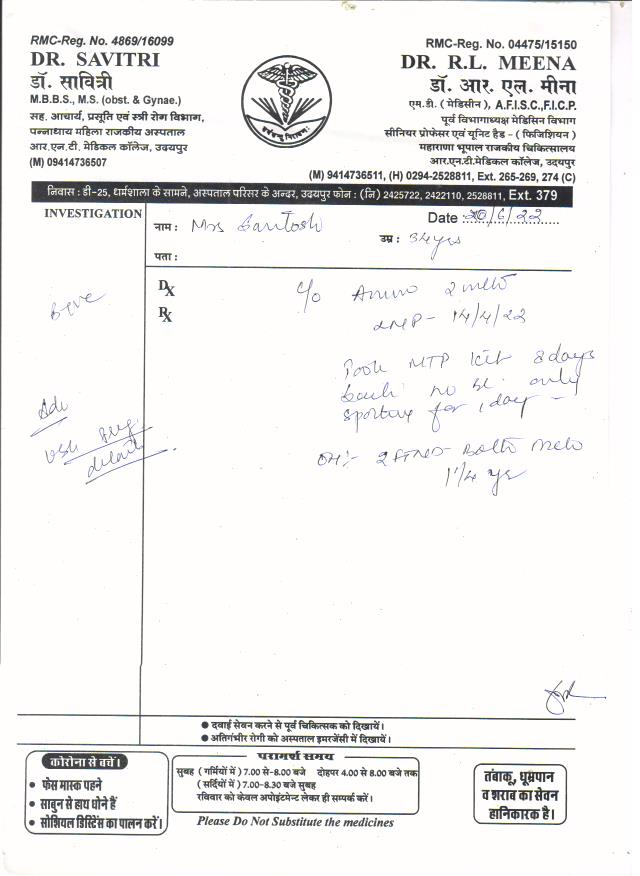 RMC-Reg. No. 4869/16099
DR. SAVITRI
डॉ. सावित्री
M.B.B.S., M.S. (obst. & Gynae.)
सह. आचार्य, प्रसूति एवं स्त्री रोग विभाग,
पन्नाधाय महिला राजकीय अस्पताल
आर.एन.टी. मेडिकल कॉलेज, उदयपुर
(M) 09414736507
RMC-Reg. No. 04475/15150
DR. R.L. MEENA
डॉ. आर. एल. मीना
एम.डी. ( मेडिसीन ), A.F.I.S.C.,F.I.C.P.
पूर्व विभागाध्यक्ष मेडिसिन विभाग
सीनियर प्रोफेसर एवं यूनिट हैड - ( फिजिशियन )
महाराणा भूपाल राजकीय चिकित्सालय
आर.एन.टी.मेडिकल कॉलेज, उदयपुर
(M) 9414736511, (H) 0294-2528811, Ext. 265-269, 274 (C)
निवास : डी-25, धर्मशाला के सामने, अस्पताल परिसर के अन्दर, उदयपुर फोन : (नि) 2425722, 2422110, 2528811, Ext. 379
INVESTIGATION
नाम : Mrs Santosh
Date : 20/6/22
उम्र : 34yrs
पता :
Dx c/o 2
Rx
LMP - 14/4/22
B+ve
Took MTP Kit 8days
back no bl. only
spotting for 1 day -
Adv
USG
OH:- 2 FTND - Both Male
1 1/4 yr
● दवाई सेवन करने से पूर्व चिकित्सक को दिखायें।
● अतिगंभीर रोगी को अस्पताल इमरजेंसी में दिखायें।
कोरोना से बचें।
● फेस मास्क पहने
● साबुन से हाथ धोने हैं
● सोशियल डिस्टिेंस का पालन करें।
परामर्श समय
सुबह ( गर्मियों में ) 7.00 से-8.00 बजे दोहपर 4.00 से 8.00 बजे तक
( सर्दियों में ) 7.00-8.30 बजे सुबह
रविवार को केवल अपोइंटमेन्ट लेकर ही सम्पर्क करें।
Please Do Not Substitute the medicines
तंबाकू, धूम्रपान
व शराब का सेवन
हानिकारक है।